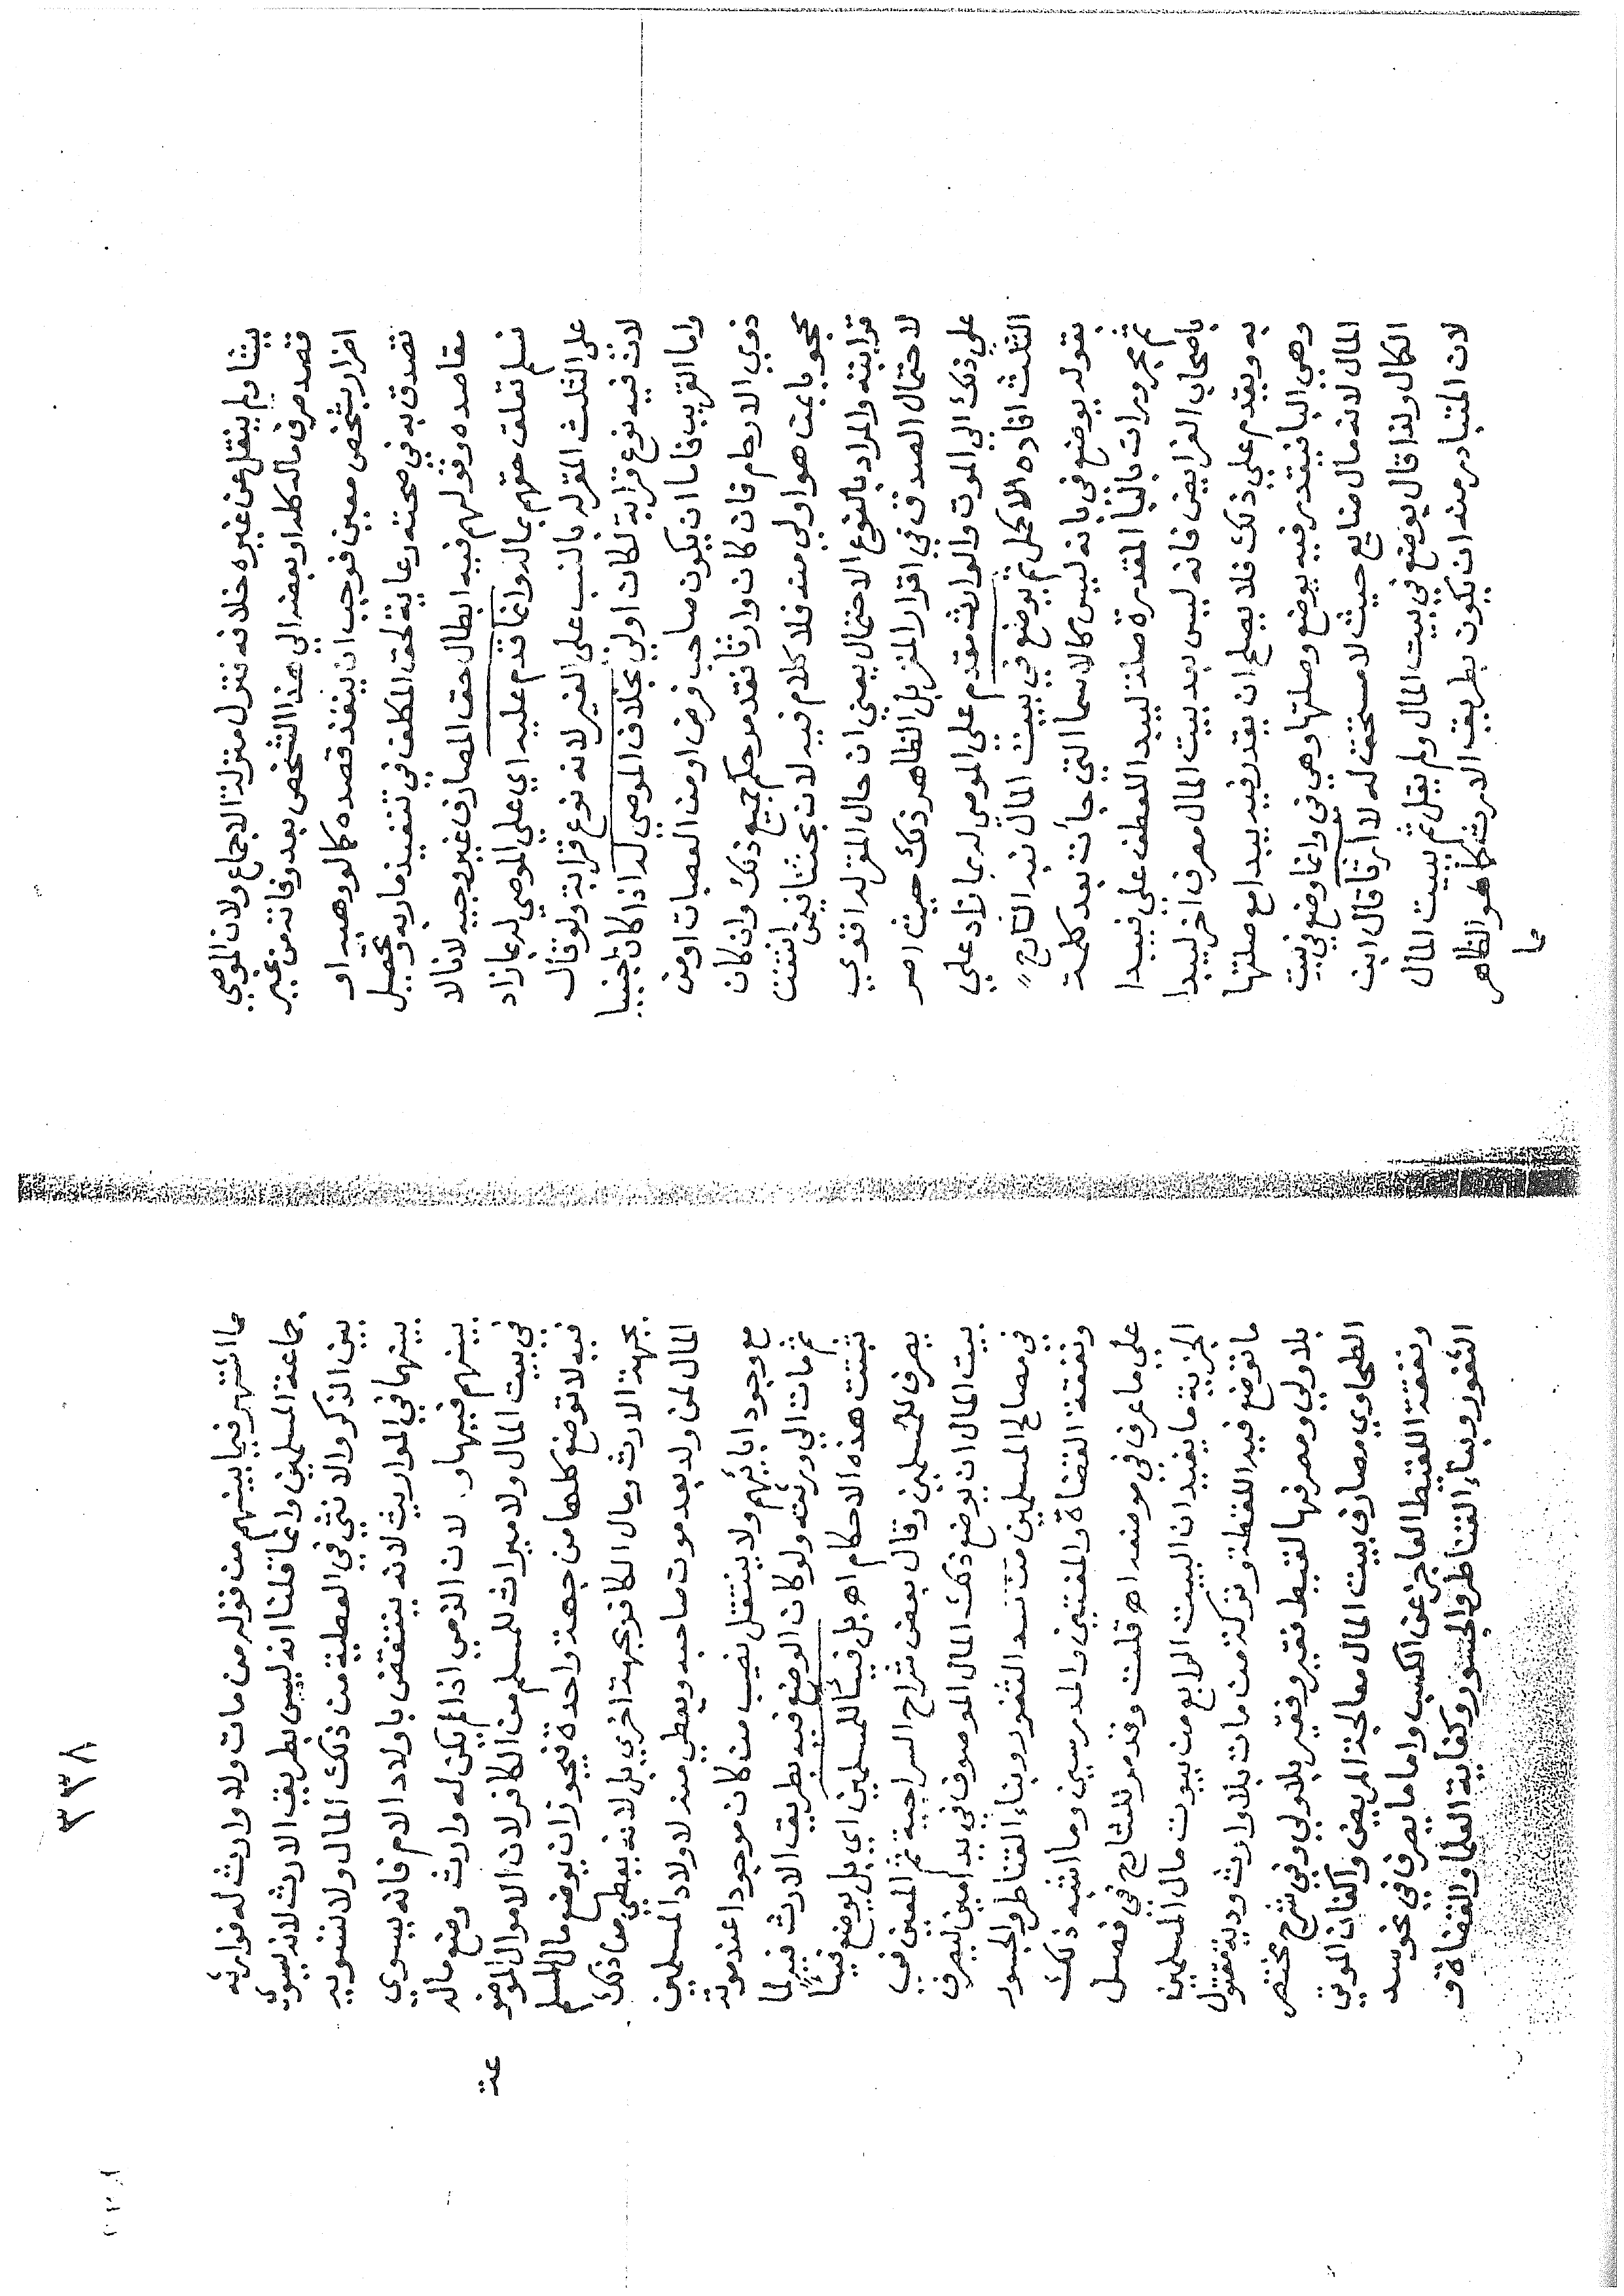 بيننا ولم ينقل عن غيره خلافه فنزل منزلة الاجماع ولان الموصي
قصد صرف ماله كله او بعضه الي هذا الشخص بعد وفاته من غير
اضرار بشخص معين فوجب ان ينفذ قصده كما لو وهبه او
تصدق به في صحته رعاية لحق المكلف في تنفيذ ماربه وتحصيل
مقاصده وقولهم فيه ابطال حق المصارف غير وجيه لانا لا
نسلم تعلق حقهم بماله وانما قدم عليه اي علي الموصي له بما زاد
على الثلث المقر له بالنسب علي الغير لانه نوع قرابة ولو قال
لان فيه نوع قرابة لكان اولي بخلاف الموصي له اذا كان اجنبيا
واما القريب فاما ان يكون صاحب فرض او من العصبات او من
ذوي الارحام فان كان وارثا فقد مر حكم جميع ذلك وان كان
محجوبا بمن هو اولي منه فلا كلام فيه لان بحثنا فيمن انتفت
قرابته والمراد بالنوع الاحتمال يعني ان حال المقر له اقوي
لاحتمال الصدق في اقرار المقر بل الظاهر ذلك حيث اصر
علي ذلك الي الموت والوارث مقدم علي الموصي له بما زاد علي
الثلث افاده الاكمل ثم يوضع في بيت المال نبه الشارح
بقوله يوضع في بانه ليس كالاسما التي جأت بعد كلمة
ثم مجرورات بالبا المقدرة صلة ليبدا للعطف علي فيبدا
باصحاب الفرايض فانه ليس بد بيت المال مصرف اخر ليبدا
به ويقدم علي ذلك فلا يصلح ان يقدر فيه يبدا مع صلتها
وهي البا فيقدر فيه يوضع وصلتها وهي في وانما وضع في بيت
المال لانه مال ضايع حيث لا مستحق له لا ارثا قال ابن
الكمال ولذا قال يوضع في بيت المال ولم يقل ثم بيت المال
لان المتبادر منه ان يكون بطريق الارث كما هو الظاهر
مما
٣٣٨
مما اشتهر فيما بينهم من قوله من مات ولا وارث له فوارثه
جماعة المسلمين وانما قلنا انه ليس بطريق الارث لانه يسوي
بين الذكر والانثي في العطية من ذلك المال ولا تسوية
بينهما في المواريث لانه ينتقض باولاد الام فانه يسوي
بينهم فيها و. لان الذمي اذا لم يكن له وارث وضع ماله
في بيت المال ولا ميراث للمسلم من الكافر لان الاموال الموضو
عة
فيه لا توضع كلها من جهة واحدة فيجوز ان يوضع مال المسلم
بجهة الارث ومال الكافر بجهة اخري بل لانه يعطي مما ذلك
المال لمن ولد بعد موت صاحبه ويعطي منه لاولاد المسلمين
مع وجود ابائهم ولا ينتقل نصيب من كان موجودا عند موته
ثم مات الي ورثته ولو كان الوضع فيه بطريق الارث فيه لما
ثبتت هذه الاحكام اهـ بل فيئا للمسلمين اي بل يوضع فيئا
يصرف للمسلمين وقال بعض شراح السراجية ثم المعين في
بيت المال ان يوضع ذلك المال الموصوف في يد امين ليصرف
في مصالح المسلمين من سد الثغور وبناء القناطر والجسور
ونفقة القضاة والمفتيين والمدرسين وما اشبه ذلك
علي ما عرف في موضعه اهـ قلت وقد مر للشارح في فصل
الجزية ما يفيد ان البيت الرابع من بيوت مال المسلمين
ما توضع فيه اللقطة وتركة من مات بلا وارث ودية مقتول
بلا ولي ومصرفها لقيط فقير وفقير بلا ولي وفي شرح مختصر
الطحاوي مصارف بيت المال معالجة المريض واكفان الموتي
ونفقة اللقيط العاجز عن الكسب واما ما يصرف في نحو سد
الثغور وبناء القناطر والجسور وكفاية العلما والقضاة ف